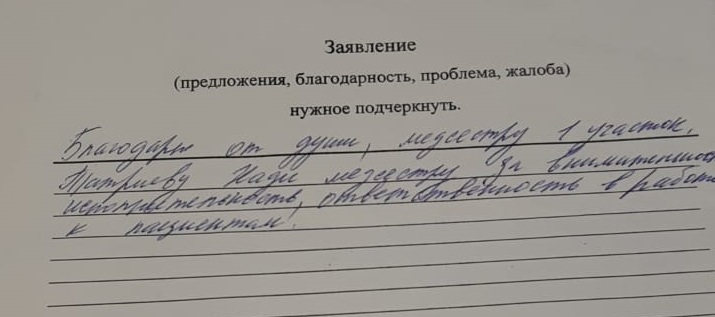 Заявление
(предложения, благодарность, проблема, жалоба)
нужное подчеркнуть.
Благодарю от души, медсестру 1 участок,
Надю медсестру за
ответственность в работе
к пациентам!